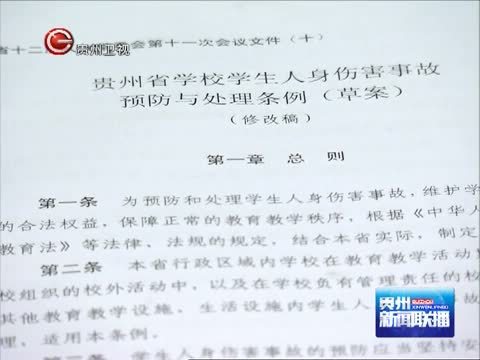 贵州卫视
省十二
会第十一次会议文件(十)
贵州省学校学生人身伤害事故
预防与处理条例(草案)
(修改稿)
第一章 总 则
第一条 为预防和处理学生人身伤害事故,维护学
的合法权益,保障正常的教育教学秩序,根据《中华人
教育法》等法律、法规的规定,结合本省实际,制定
第二条 本省行政区域内学校在教育教学活动
校组织的校外活动中,以及在学校负有管理责任的校
其他教育教学设施、生活设施内学生人
故
理,适用本条例。
学生人身伤害事故的预防应当坚持安
贵州
新闻联播